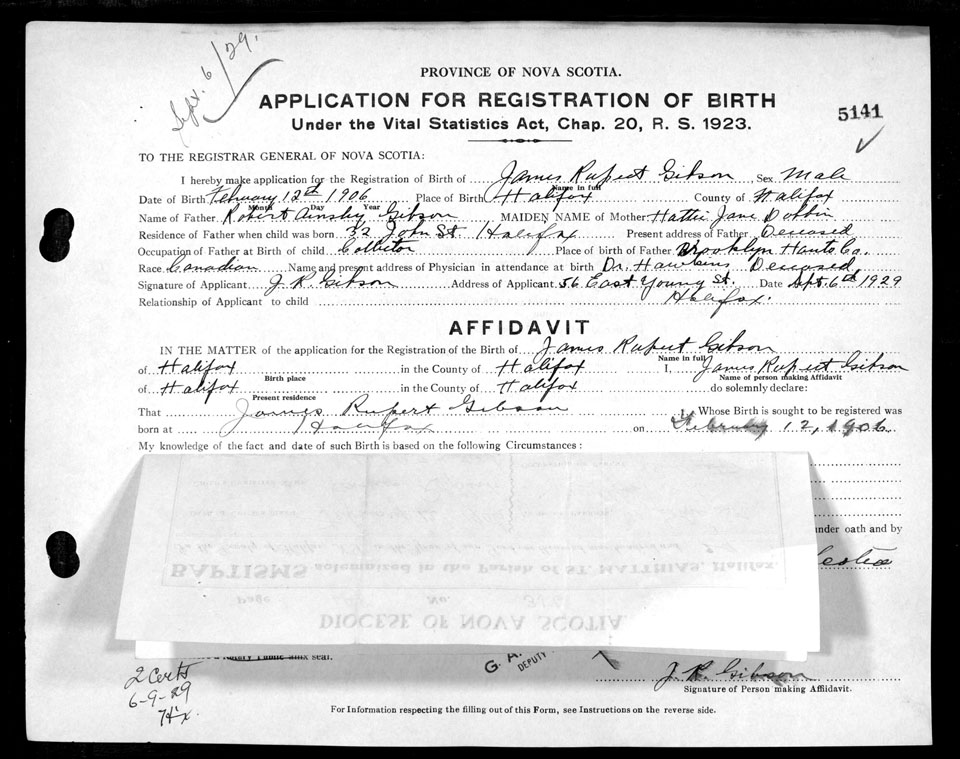 Sept. 6/29.
PROVINCE OF NOVA SCOTIA.
APPLICATION FOR REGISTRATION OF BIRTH
Under the Vital Statistics Act, Chap. 20, R. S. 1923.
5141
TO THE REGISTRAR GENERAL OF NOVA SCOTIA:
I hereby make application for the Registration of Birth of James Rupert Gibson Sex Male
Name in full
Date of Birth February 12th 1906 Place of Birth Halifax County of Halifax
Month Day Year
Name of Father Robert Ainsley Gibson MAIDEN NAME of Mother Hattie Jane Dobbin
Residence of Father when child was born 32 John St Halifax Present address of Father Deceased
Occupation of Father at Birth of child Collector Place of birth of Father Brooklyn Hants Co.
Race Canadian Name and present address of Physician in attendance at birth Dr. Hawkins Deceased
Signature of Applicant J. R. Gibson Address of Applicant 56 East Young St. Date Sept. 6th 1929
Halifax.
Relationship of Applicant to child
AFFIDAVIT
IN THE MATTER of the application for the Registration of the Birth of James Rupert Gibson
Name in full
of Halifax in the County of Halifax I, James Rupert Gibson
Birth place Name of person making Affidavit
of Halifax in the County of Halifax do solemnly declare:
Present residence
That James Rupert Gibson Whose Birth is sought to be registered was
born at Halifax on February 12, 1906
My knowledge of the fact and date of such Birth is based on the following Circumstances:
under oath and by
BAPTISMS solemnized in the Parish of ST. MATTHIAS, Halifax.
Page No.
DIOCESE OF NOVA SCOTIA
seal.
G. A.
DEPUTY
2 Certs
6-9-29
Hx.
J. R. Gibson
Signature of Person making Affidavit.
For Information respecting the filling out of this Form, see Instructions on the reverse side.